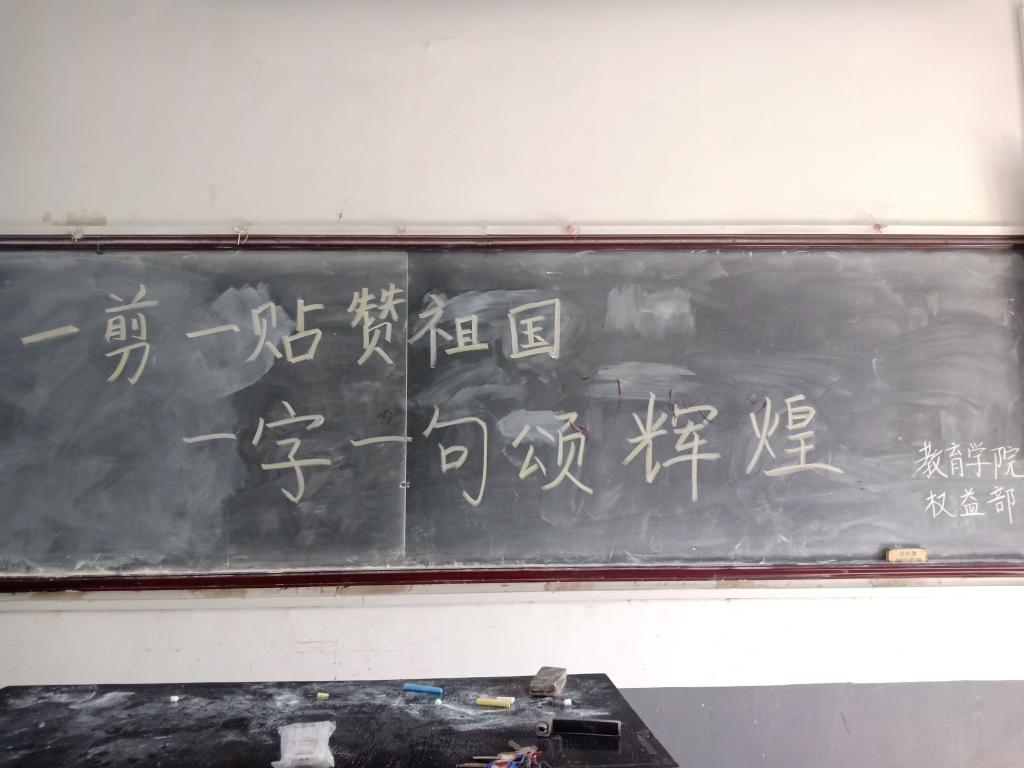 一剪一贴赞祖国
一字一句颂辉煌
教育学院
权益部